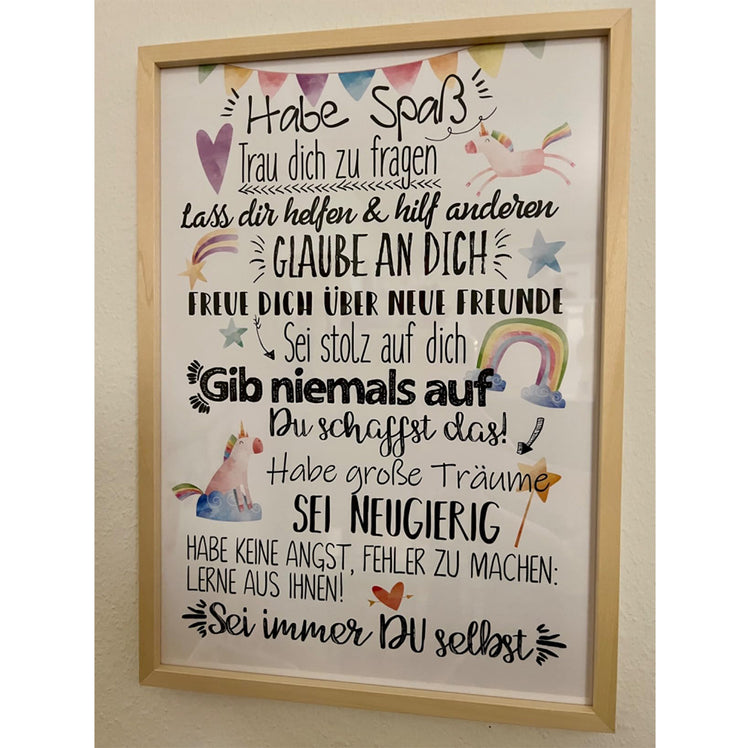 Habe Spaß
Trau dich zu fragen
Lass dir helfen & hilf anderen
GLAUBE AN DICH
FREUE DICH ÜBER NEUE FREUNDE
Sei stolz auf dich
Gib niemals auf
Du schaffst das!
Habe große Träume
SEI NEUGIERIG
HABE KEINE ANGST, FEHLER ZU MACHEN:
LERNE AUS IHNEN!
Sei immer DU selbst